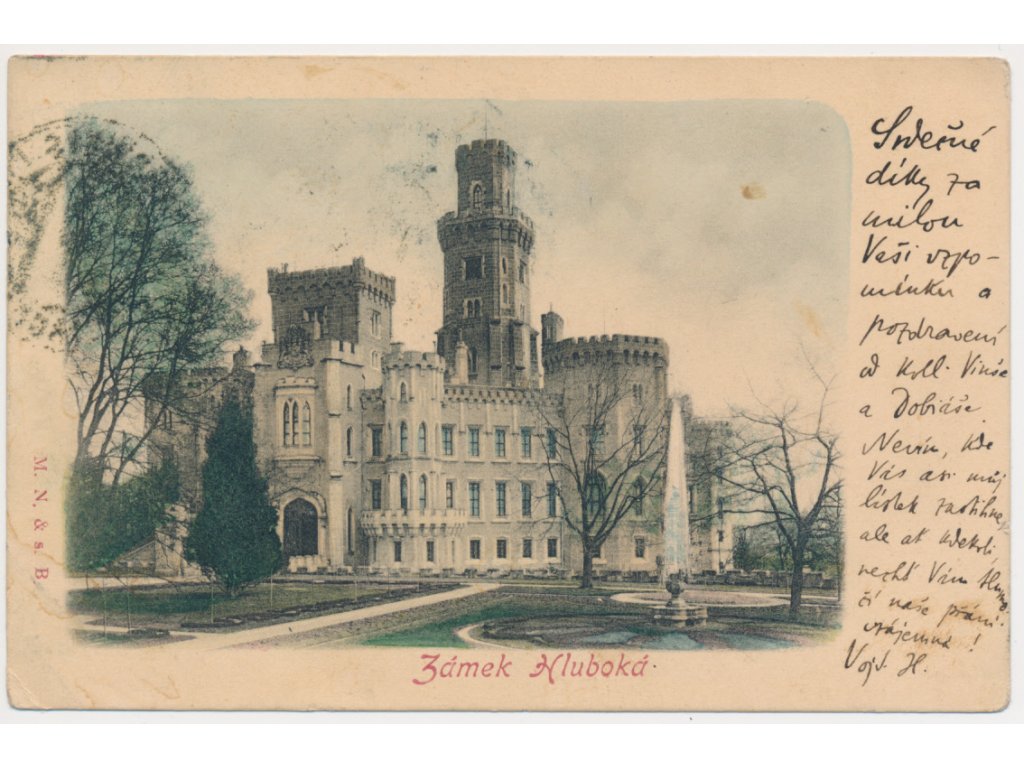 Srdečné
díky za
milou
Vaši vzpo-
mínku a
pozdravení
od Koll. Vinše
a Dobiáše.
Nevím, kde
Vás asi můj
lístek zastihne,
ale ať kdekoli,
nechť Vám
čí naše přání
vzájemná!
Vojt. H.
Zámek Hluboká.
M. N. & s. B.